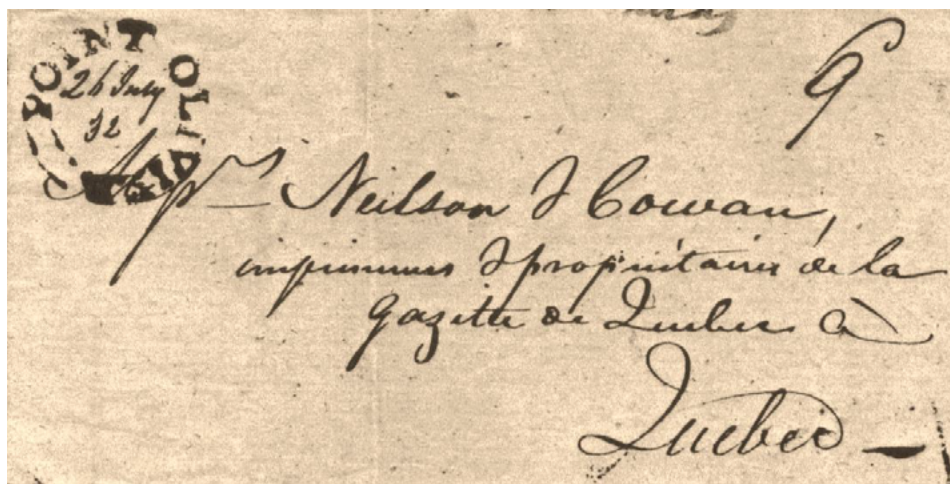 6
POINT OLIVIER
26 July
32
Mess.rs Neilson & Cowan,
imprimeurs & propriétaires de la
Gazette de Quebec à
Quebec